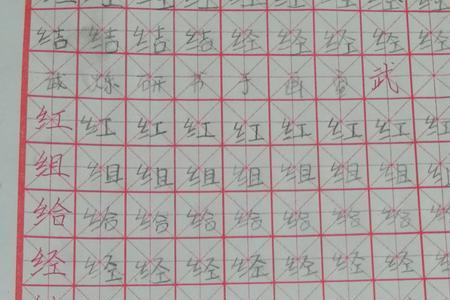 结 结 结 结 经 经 经 经
武 烁 研 书 于 武
红 红 红 红 红 红 红 红 红
组 组 组 组 组 组 组 组 组
给 给 给 给 给 给 给 给 给
经 经 经 经 经 经 经 经 经